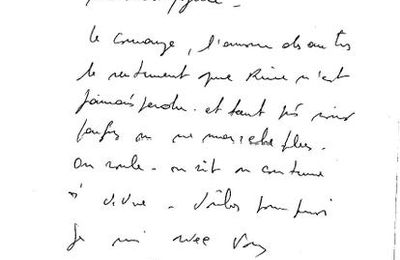 le courage, l'amour des autres
le sentiment que rien n'est
jamais perdu. et tant pis si nous
parfois on ne marche plus.
on roule. on rit on continue
à vivre. Voilà pourquoi
je suis avec vous